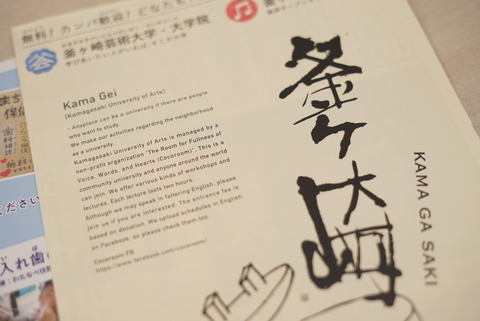 無料！カンパ歓迎！どなたも
釜ヶ崎芸術大学・大学院
学び合いたい人がいれば、そこが大学
Kama Gei
(Kamagasaki University of Arts)
- Anyplace can be a university if there are people
who want to study.
We make our activities regarding the neighborhood
as a university.
Kamagasaki University of Arts is managed by a
non-profit organization "The Room for Fullness of
Voice, Words, and Hearts (Cocoroom)". This is a
community university and anyone around the world
can join. We offer various kinds of workshops and
lectures. Each lecture lasts two hours.
Although we may speak in faltering English, please
join us if you are interested. The entrance fee is
based on donation. We upload schedules in English
on Facebook, so please check them too.
Cocoroom FB
https://www.facebook.com/cocoroom/
釜ヶ崎
KAMA GA SAKI
まち
保健
歯科相談
ださい
入れ歯の